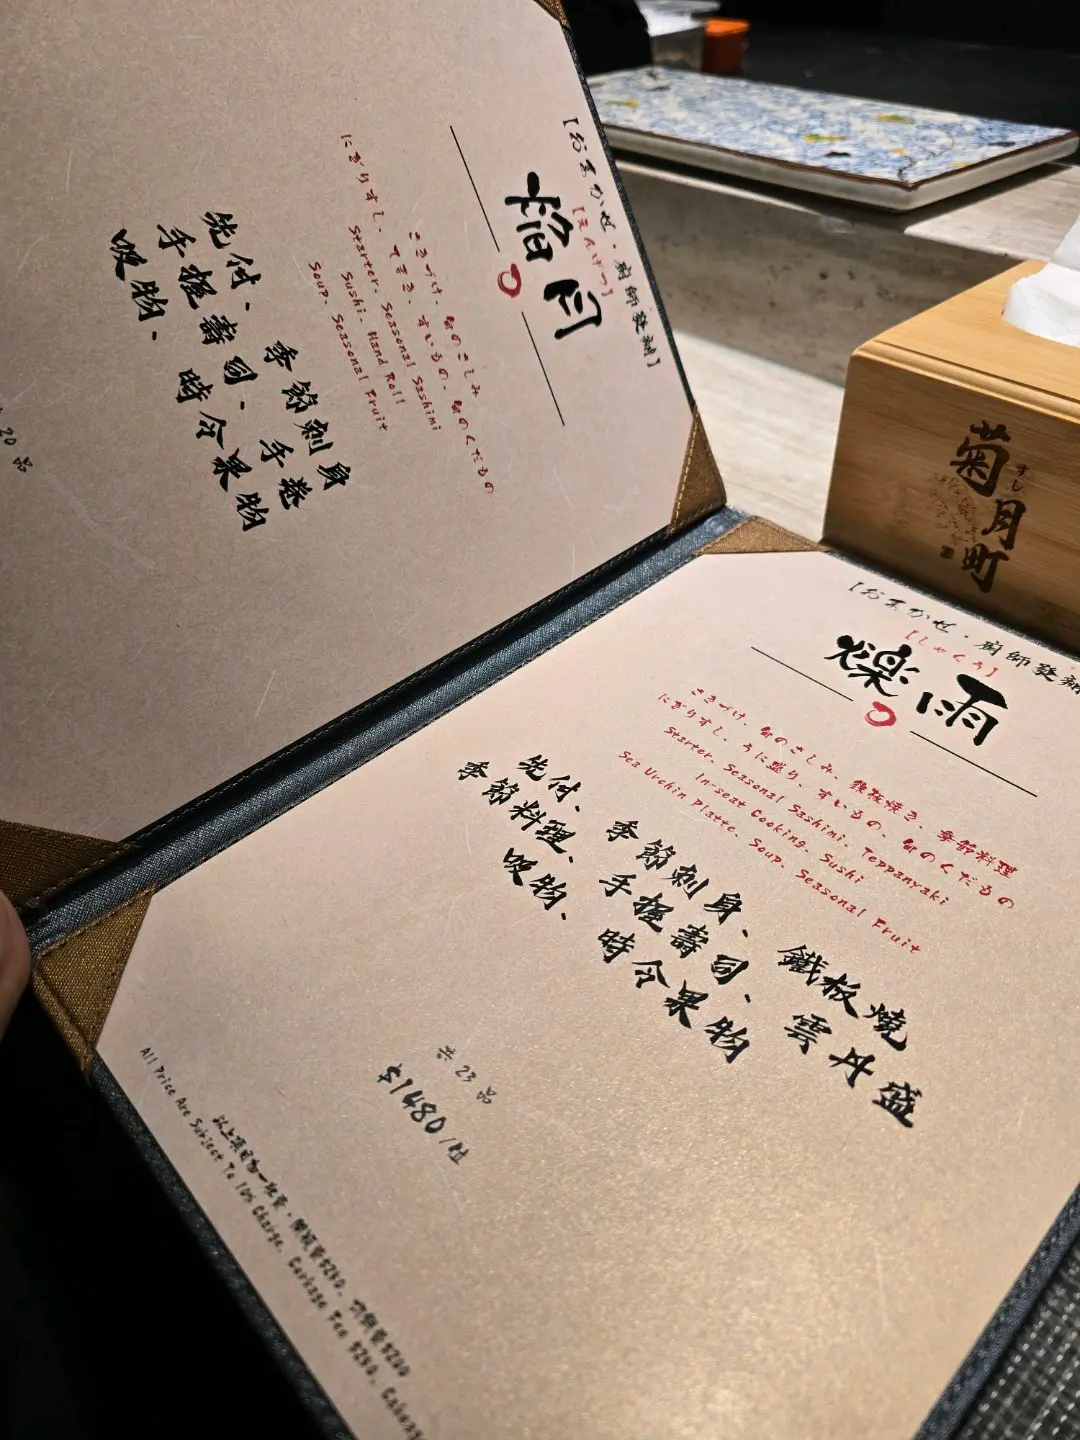 【おまかせ・廚師發辦】
【えんげつ】
焰月
さきづけ、旬のさしみ
にぎりすし、てまき、すいもの、旬のくだもの
Starter、Seasonal Sashimi
Sushi、Hand Roll
Soup、Seasonal Fruit
先付、季節刺身
手握壽司、手卷
吸物、時令果物
20 品
菊月町
すし
【おまかせ・廚師發辦
【しゃくう】
爍雨
さきづけ、旬のさしみ、鉄板焼き、季節料理
にぎりすし、うに盛り、すいもの、旬のくだもの
Starter、Seasonal Sashimi、Teppanyaki
In-seat Cooking、Sushi
Sea Urchin Platte、Soup、Seasonal Fruit
先付、季節刺身、鐵板燒
季節料理、手握壽司、雲丹盛
吸物、時令果物
共 23 品
$1480/位
以上項目加一收費・開瓶費$250、切餅費$200
All Price Are Subject To 10% Charge、Corkage Fee $250、Cakeag